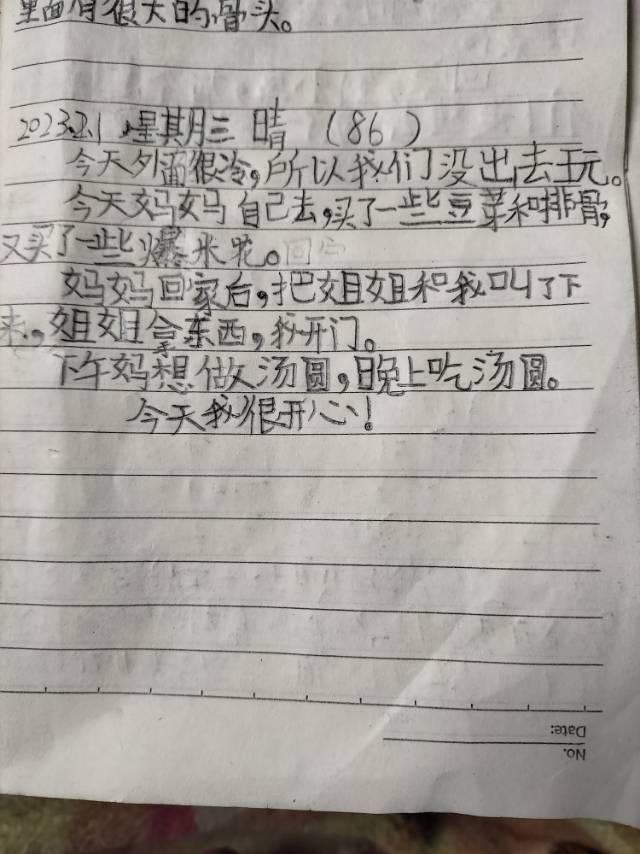 里面有很大的骨头。
2023.2.1 星期三 晴 (86)
今天外面很冷,所以我们没出去玩。
今天妈妈自己去,买了一些豆芽和排骨,
又买了一些爆米花。
妈妈回家后,把姐姐和我叫了下
来,姐姐拿东西,我开门。
下午妈想做汤圆,晚上吃汤圆。
今天我很开心!
Date:
No.